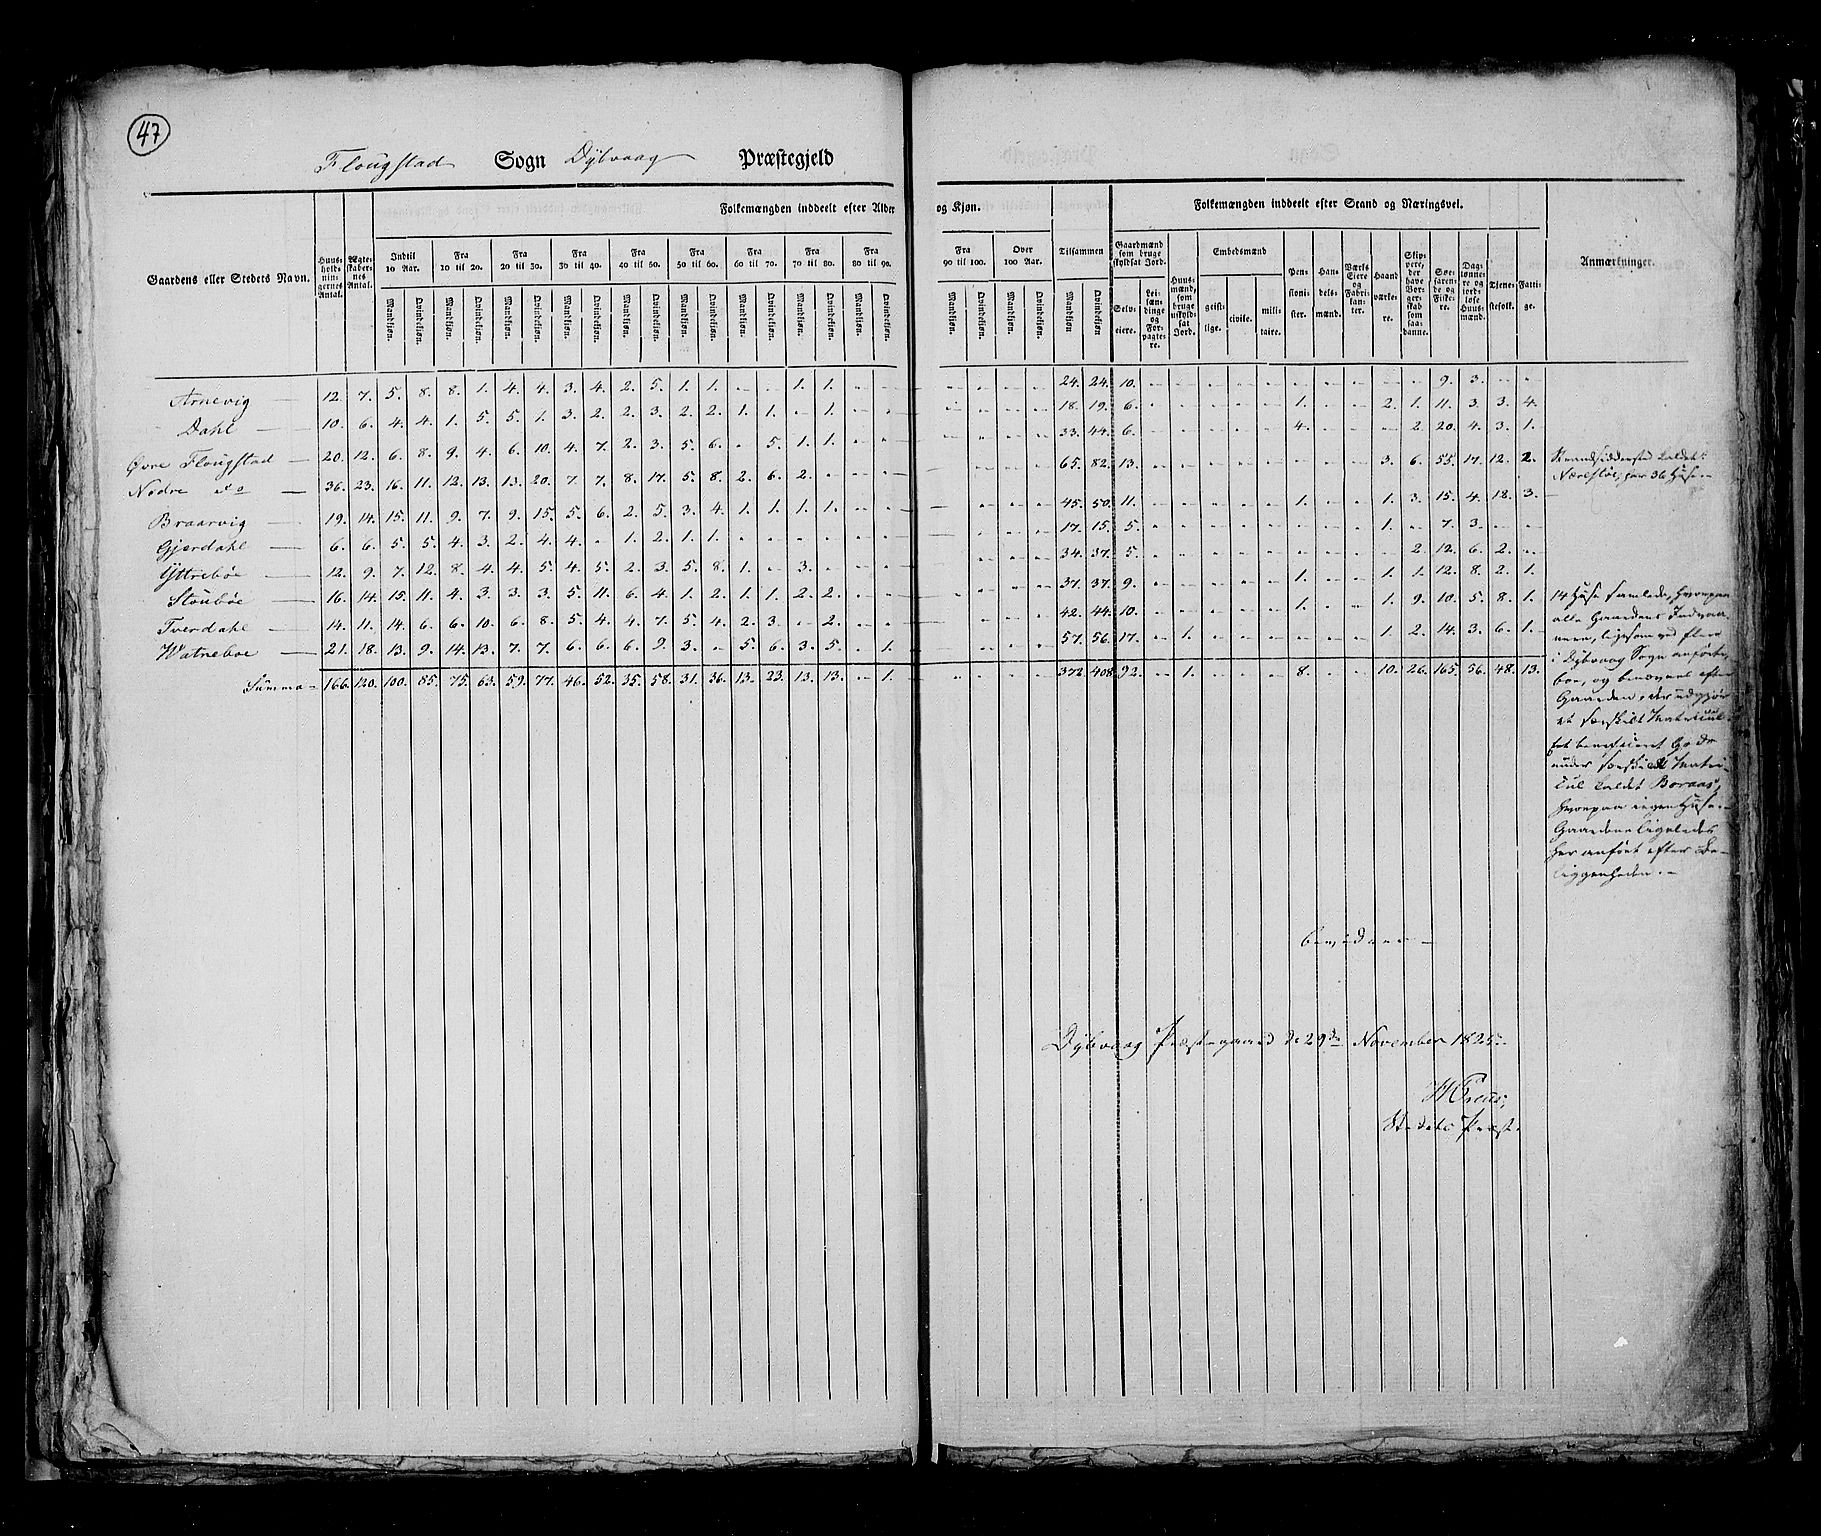 47
Flougstad Sogn Dybvaag Præstegjeld
Folkemængden inddeelt efter Alder og Kjøn. Folkemængden inddeelt efter Stand og Næringsvei.
Gaardens eller Stedets Navn. Huusholdningernes Antal. Ægteskabernes Antal. Indtil 10 Aar. Fra 10 til 20. Fra 20 til 30. Fra 30 til 40. Fra 40 til 50. Fra 50 til 60. Fra 60 til 70. Fra 70 til 80. Fra 80 til 90. Fra 90 til 100. Over 100 Aar. Tilsammen Gaardmænd som bruge skyldsat Jord. Huusmænd, som bruge uskyldsat Jord. Embedsmænd Pensionister. Handelsmænd. Værks Eiere og Fabrikanter. Haandværkere. Skippere, der have Borgerskab som saadanne. Søefarende og Fiskere. Daglønnere og jordløse Huusmænd. Tjenestefolk. Fattige. Anmærkninger.
Mandkiøn. Qvindekiøn. Mandkiøn. Qvindekiøn. Mandkiøn. Qvindekiøn. Mandkiøn. Qvindekiøn. Mandkiøn. Qvindekiøn. Mandkiøn. Qvindekiøn. Mandkiøn. Qvindekiøn. Mandkiøn. Qvindekiøn. Mandkiøn. Qvindekiøn. Mandkiøn. Qvindekiøn. Mandkiøn. Qvindekiøn. Mandkiøn. Qvindekiøn. Selveiere. Leilændinge og Forpagtere. geistlige. civile. militaire.
Arnevig 12. 7. 5. 8. 8. 1. 4. 4. 3. 4. 2. 5. 1. 1. - - 1. 1. - - - - - - 24. 24. 10. - - - - - - - - - - 9. 3. - -
Dahl 10. 6. 4. 4. 1. 5. 5. 1. 3. 2. 2. 3. 2. 2. 1. 1. - 1. - - - - - - 18. 19. 6. - - - - - 1. - - 2. 1. 11. 3. 3. 4.
Øvre Flougstad 20. 12. 6. 8. 9. 4. 6. 10. 4. 7. 2. 3. 5. 6. - 5. 1. 1. - - - - - - 33. 44. 6. - - - - - 4. - - - 2. 20. 4. 3. 1.
Nedre do 36. 23. 16. 11. 12. 13. 13. 20. 7. 7. 8. 17. 5. 8. 2. 6. 2. - - - - - - - 65. 82. 13. - - - - - - - - 3. 6. 55. 17. 12. 2.
Braarvig 19. 14. 15. 11. 9. 7. 9. 15. 5. 6. 2. 5. 3. 4. 1. 1. 1. 1. - - - - - - 45. 50. 11. - - - - - 1. - - 1. 3. 15. 4. 18. 3.
Gjerdahl 6. 6. 5. 5. 4. 3. 2. 4. 4. - 1. 2. 1. 1. - - - - - - - - - - 17. 15. 5. - - - - - - - - 1. - 7. 3. - -
Yttrebøe 12. 9. 7. 12. 8. 4. 4. 5. 4. 5. 2. 3. 5. 8. 1. - 3. - - - - - - - 34. 37. 5. - - - - - - - - - 2. 12. 6. 2. -
Stoubøe 16. 14. 15. 11. 4. 3. 3. 3. 5. 11. 6. 4. 1. 2. 1. 1. 2. 2. - - - - - - 37. 37. 9. - - - - - 1. - - 1. 1. 12. 8. 2. 1.
Tverdahl 14. 11. 14. 6. 6. 10. 6. 8. 5. 4. 4. 7. 5. 4. 2. 3. - 2. - - - - - - 42. 44. 10. - - - - - 1. - - 1. 9. 10. 5. 8. 1.
Watneboe 21. 18. 13. 9. 14. 13. 7. 7. 6. 6. 6. 9. 3. - 5. 6. 3. 5. - 1. - - - - 57. 56. 17. - 1. - - - - - - 1. 2. 14. 3. 6. 1.
Summa 166. 120. 100. 85. 75. 63. 59. 77. 46. 52. 35. 58. 31. 36. 13. 23. 13. 13. - 1. - - - - 372. 408. 92. - 1. - - - 8. - - 10. 26. 165. 56. 48. 13.
Strandsiddersted kaldet
Næs, har 36 Huse.
14 Huse samlede, hvorpaa
alle Gaardens Indvaa-
nere, ligesom ved flere
i Dybvaag Sogn anførte,
boe, og benævnes efter
Gaarden, der udgjør
et særskilt Matricul.
beneficeret Gods
under særskilt Matri-
cul kaldet Boraas,
hvorpaa ingen Huse.
Gaardene ligeledes
her anført efter Be-
liggenheden.
bevidner
Dybvaag Præstegaard d. 29de November 1825.
Stedets Præst.